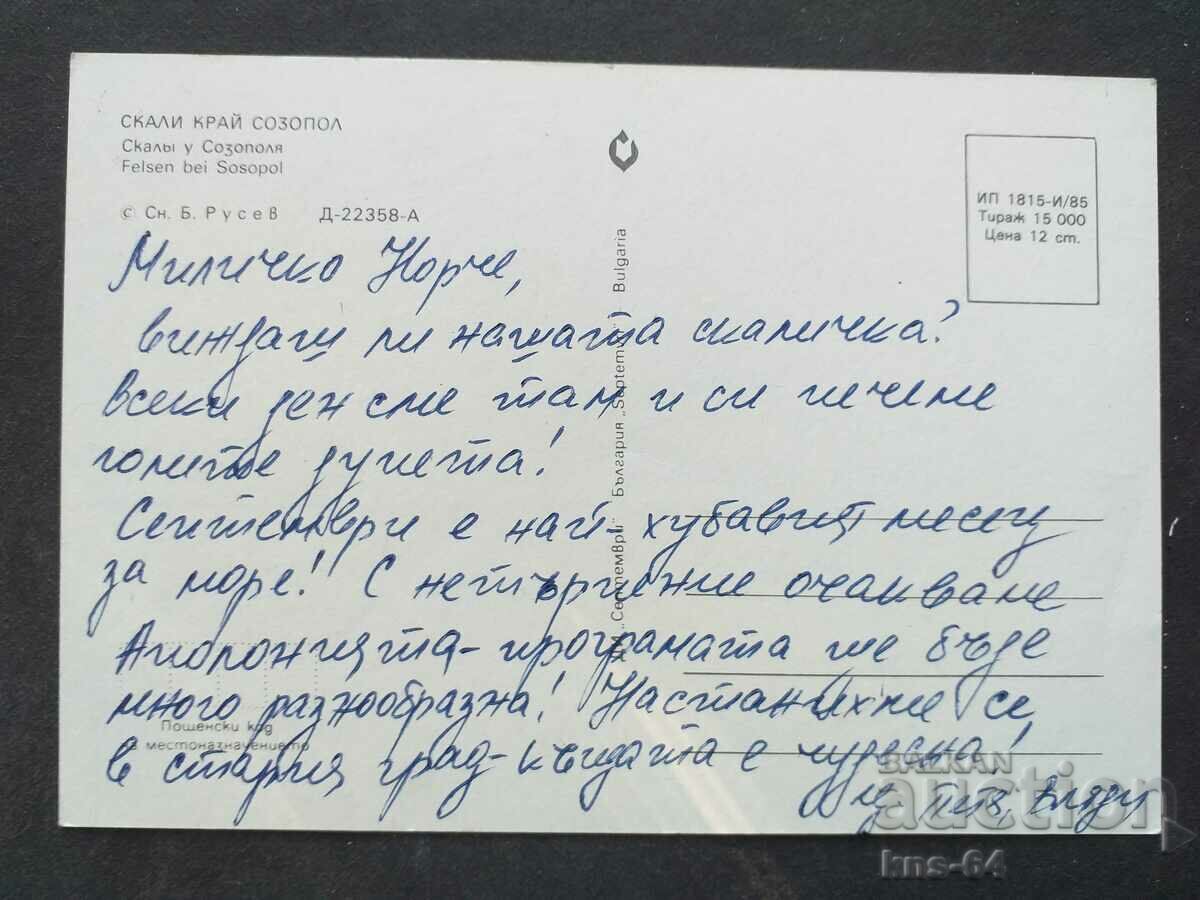 СКАЛИ КРАЙ СОЗОПОЛ
Скалы у Созополя
Felsen bei Sosopol
© Сн. Б. Русев Д-22358-А
ИП 1815-И/85
Тираж 15 000
Цена 12 ст.
ДП „Септември“ България „Septemvri“ Bulgaria
Миличко Норче,
виждаш ли нашата скаличка?
Всеки ден сме там и си печеме
голите дупета!
Септември е най-хубавият месец
за море! С нетърпение очакваме
Аполонията - програмата ще бъде
много разнообразна! Настанихме се
в стария град - къщата е чудесна!
ц. Владу
Пощенски код
на местоназначението
BALKAN
auction
kns-64